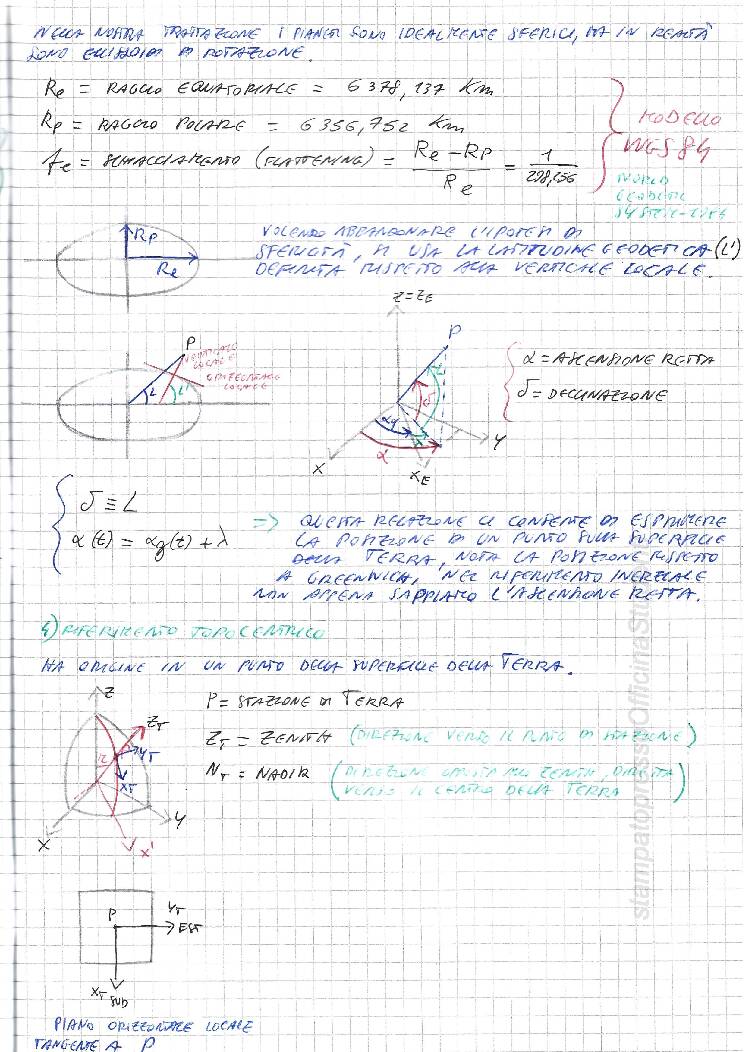 NELLA NOSTRA TRATTAZIONE I PIANETI SONO IDEALMENTE SFERICI, MA IN REALTÀ
SONO ELLISSOIDI DI ROTAZIONE.
Re = RAGGIO EQUATORIALE = 6378,137 Km
Rp = RAGGIO POLARE = 6356,752 Km
fe = SCHIACCIAMENTO (FLATTENING) = Re - Rp / Re = 1 / 298,256
MODELLO
WGS 84
WORLD
GEODETIC
SYSTEM - 1984
Rp
Re
VOLENDO ABBANDONARE L'IPOTESI DI
SFERICITÀ, SI USA LA LATITUDINE GEODETICA (L')
DEFINITA RISPETTO ALLA VERTICALE LOCALE.
P
VERTICALE
LOCALE
ORIZZONTALE
LOCALE
L
L'
Z=ZE
P
L
δ
αg
λ
α
X
XE
Y
α = ASCENSIONE RETTA
δ = DECLINAZIONE
δ ≡ L
α(t) = αg(t) + λ
=> QUESTA RELAZIONE CI CONSENTE DI ESPRIMERE
LA POSIZIONE DI UN PUNTO SULLA SUPERFICIE
DELLA TERRA, NOTA LA POSIZIONE RISPETTO
A GREENWICH, NEL RIFERIMENTO INERZIALE
NON APPENA SAPPIAMO L'ASCENSIONE RETTA.
4) RIFERIMENTO TOPOCENTRICO
HA ORIGINE IN UN PUNTO DELLA SUPERFICIE DELLA TERRA.
Z
ZT
YT
XT
Y
X
X'
P = STAZIONE DI TERRA
ZT = ZENITH (DIREZIONE VERSO IL PUNTO DI STAZIONE)
NT = NADIR (DIREZIONE OPPOSTA ALLO ZENITH, DIRETTA
VERSO IL CENTRO DELLA TERRA)
P
YT
EST
XT SUD
PIANO ORIZZONTALE LOCALE
TANGENTE A P